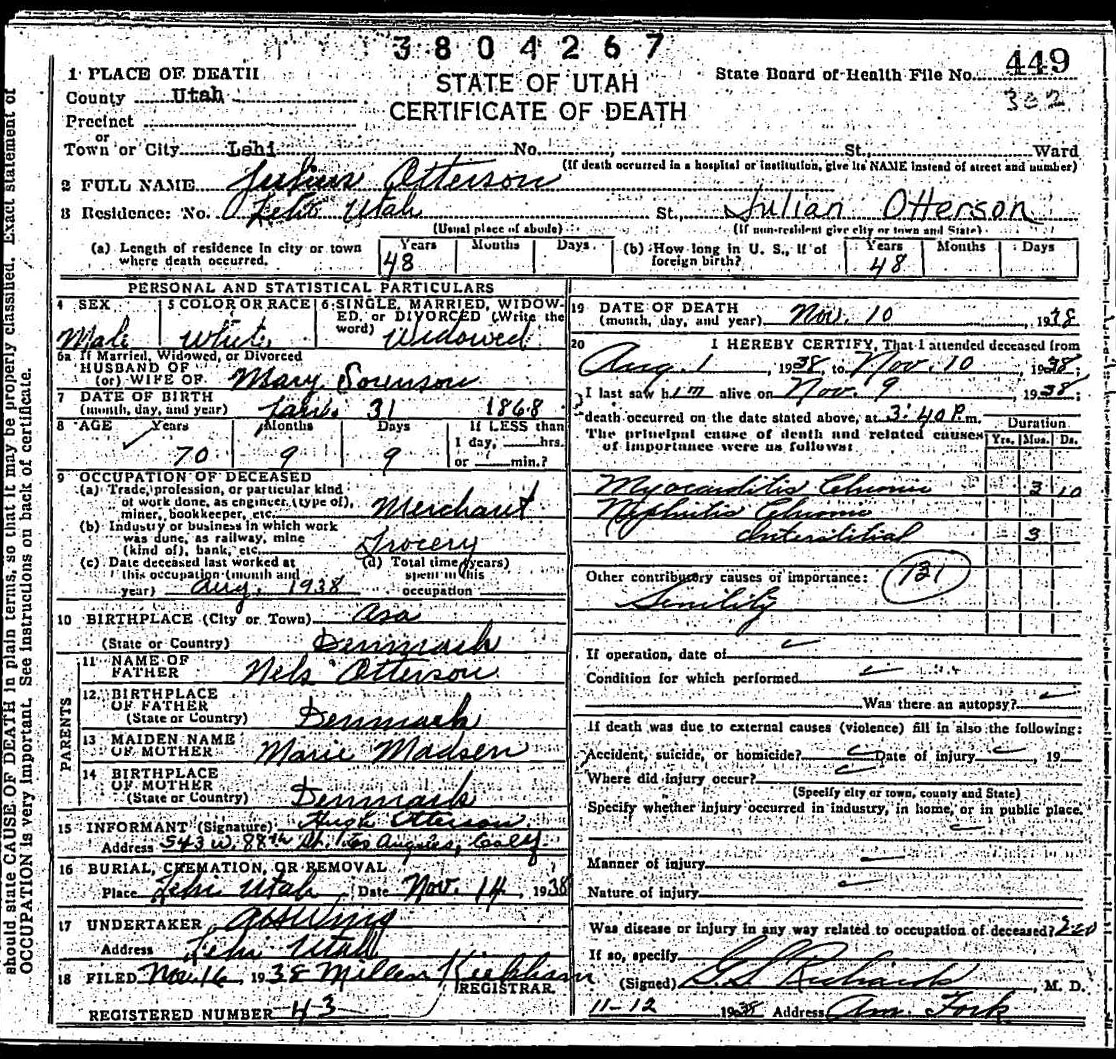 3804267
1 PLACE OF DEATH
STATE OF UTAH
CERTIFICATE OF DEATH
State Board of Health File No. 449
302
County Utah
Precinct
or
Town or City Lehi No. , St., Ward
(If death occurred in a hospital or institution, give its NAME instead of street and number)
2 FULL NAME Julius Otterson
3 Residence: No. Lehi Utah St., Julian Otterson
(Usual place of abode) (If non-resident give city or town and State)
(a) Length of residence in city or town where death occurred. Years 48 Months Days
(b) How long in U. S., if of foreign birth? Years 48 Months Days
PERSONAL AND STATISTICAL PARTICULARS
4 SEX Male
5 COLOR OR RACE White
6 SINGLE, MARRIED, WIDOWED, or DIVORCED (Write the word) Widowed
6a If Married, Widowed, or Divorced
HUSBAND OF
(or) WIFE OF Mary Sorenson
7 DATE OF BIRTH
(month, day, and year) Jan. 31 1868
8 AGE Years 70 Months 9 Days 9 If LESS than 1 day, hrs. or min.?
9 OCCUPATION OF DECEASED
(a) Trade, profession, or particular kind
of work done, as engineer, (type of),
miner, bookkeeper, etc. Merchant
(b) Industry or business in which work
was done, as railway, mine
(kind of), bank, etc. Grocery
(c) Date deceased last worked at
this occupation (month and
year) Aug. 1938
(d) Total time (years)
spent in this
occupation
10 BIRTHPLACE (City or Town) Asa
(State or Country) Denmark
PARENTS
11 NAME OF
FATHER Nels Otterson
12 BIRTHPLACE
OF FATHER
(State or Country) Denmark
13 MAIDEN NAME
OF MOTHER Marie Madsen
14 BIRTHPLACE
OF MOTHER
(State or Country) Denmark
15 INFORMANT (Signature) Hugh Otterson
Address 543 W. 88th St. Los Angeles, Calif
16 BURIAL, CREMATION, OR REMOVAL
Place Lehi Utah Date Nov. 14 1938
17 UNDERTAKER
Address Lehi Utah
18 FILED Nov. 16 1938 Kirkham
REGISTRAR.
REGISTERED NUMBER 43
19 DATE OF DEATH
(month, day, and year) Nov. 10, 1938
20 I HEREBY CERTIFY, That I attended deceased from
Aug. 1, 1938, to Nov. 10, 1938;
I last saw him alive on Nov. 9, 1938;
death occurred on the date stated above, at 3:40 P.m.
The principal cause of death and related causes
of importance were as follows:
Duration
Yrs. Mos. Ds.
Myocarditis Chronic 3 10
Nephritis Chronic
Interstitial 3
Other contributory causes of importance: 131
Senility
If operation, date of
Condition for which performed
Was there an autopsy?
If death was due to external causes (violence) fill in also the following:
Accident, suicide, or homicide? Date of injury, 19
Where did injury occur?
(Specify city or town, county and State)
Specify whether injury occurred in industry, in home, or in public place.
Manner of injury
Nature of injury
Was disease or injury in any way related to occupation of deceased?
If so, specify
(Signed) G.S. Richards, M. D.
11-12 1938 Address Am. Fork
should state CAUSE OF DEATH in plain terms, so that it may be properly classified. Exact statement of
OCCUPATION is very important. See instructions on back of certificate.